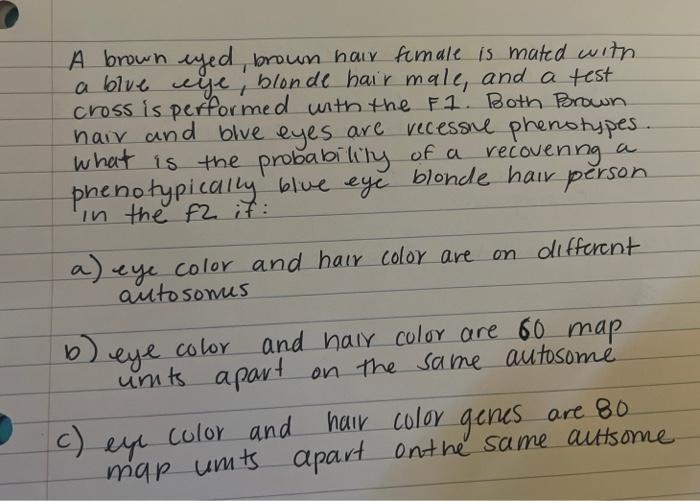 A brown eyed, brown hair female is mated with
a blue eye, blonde hair male, and a test
cross is performed with the F1. Both Brown
hair and blue eyes are recessive phenotypes.
What is the probability of a recovering a
phenotypically blue eye blonde hair person
in the f2 if:
a) eye color and hair color are on different
autosomes
b) eye color and hair color are 60 map
units apart on the same autosome
c) eye color and hair color genes are 80
map units apart onthe same auttsome